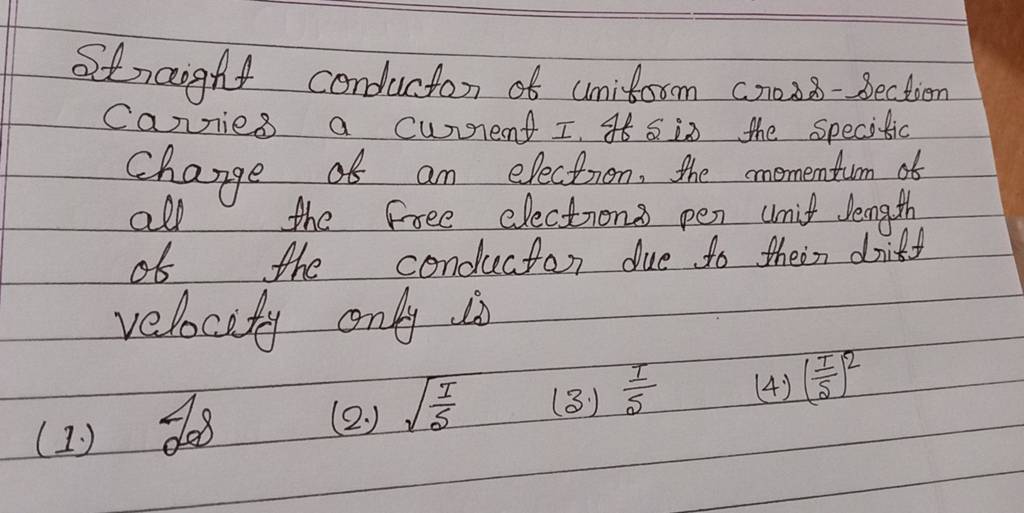 Straight conductor of uniform cross-section
Carries a current I. If s is the specific
Charge of an electron, the momentum of
all the free electrons per unit length
of the conductor due to their drift
velocity only is
(1.) Is (2.) √(I/s) (3.) I/s (4.) (I/s)²